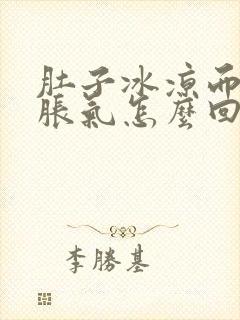 肚子冰涼而
脹氣怎麼回
李勝基